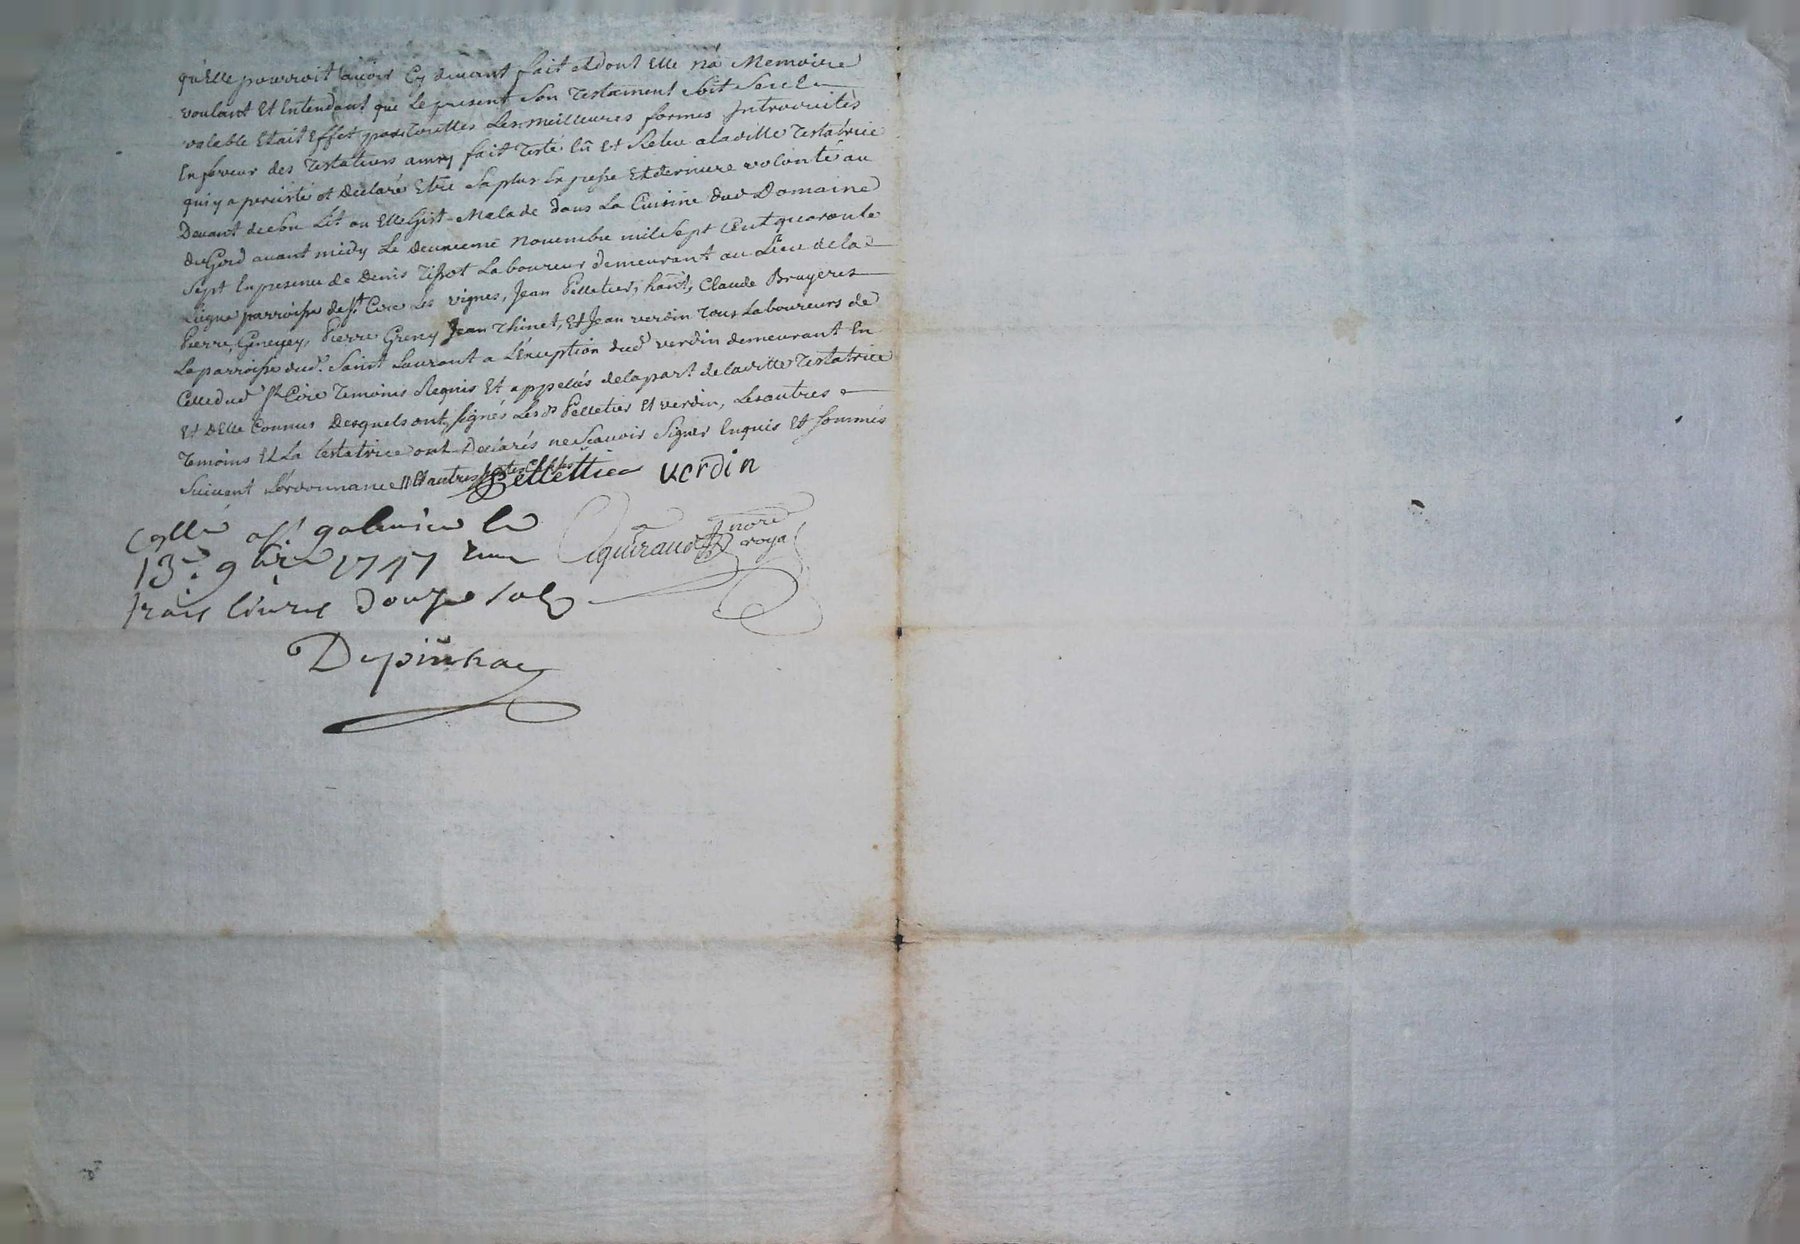 qu'Elle pourroit avoir Cy devant fait et dont Elle n'a Memoire
voulant Et Entendant que Le present son Testament soit seul
valable Et ait Effet par touttes Les meilleures formes Introduites
En faveur des Testateurs ainsy fait Testé lû et Releu a laditte Testatrice
qui y a persisté et declaré Etre sa plus Expresse Et derniere volonté au
Devant de son Lit ou Elle Gist Malade dans La Cuisine dud Domaine
du Gord avant midy Le deuxieme novembre mil sept Cent quarante
sept En presence de Denis Tissot Laboureur demeurant au Lieu de la
parroisse de st Cire les vignes, Jean Pelletier, Claude Bruyeres
Pierre Pierre Greny Jean Thinet, Et Jean verdin Tous Laboureurs de
La parroisse dud. Saint Laurant a L'Exception dud verdin demeurant En
Celle dud st Cire Temoins Requis Et appellés de la part de laditte Testatrice
Et d'Elle Connus Desquels ont signés Les ds Pelletier Et verdin, Les autres
Temoins Et La testatrice ont Declarés ne scavoir signer Enquis Et sommés
suivant L'ordonnance Et autres
Pellettier verdin
Collé a st galmier le
13e. 9bre 1747 Reçu
trois livres douze sols
nore royal